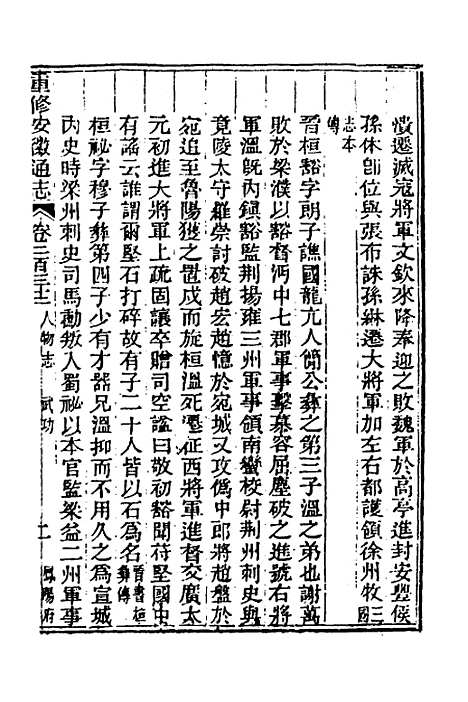 憤遷滅寇將軍文欽來降奉迎之敗魏軍於高亭進封安豐侯
孫休卽位與張布誅孫綝遷大將軍加左右都護領徐州牧三國
志本
傳
晉桓豁字朗子譙國龍亢人簡公彝之第三子溫之弟也謝萬
敗於梁濮以豁督沔中七郡軍事擊慕容屈塵破之進號右將
軍溫旣內鎭豁監荆揚雍三州軍事領南蠻校尉荆州刺史與
竟陵太守羅崇討破趙宏趙憶於宛城又攻僞中郎將趙盤於
宛追至魯陽獲之置戍而旋桓溫死遷征西將軍進督交廣太
元初進大將軍上疏固讓卒贈司空諡曰敬初豁聞苻堅國中
有謠云誰謂爾堅石打碎故有子二十人皆以石爲名晉書桓
彝傳
桓祕字穆子彝第四子少有才器兄溫抑而不用久之爲宣城
內史時梁州刺史司馬勳叛入蜀祕以本官監梁益二州軍事
重修安徽通志 卷二百三十二 人物志 武功 二 鳳陽府